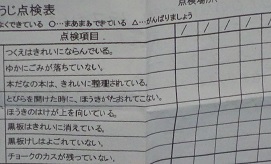 うじ点検表
よくできている 〇…まあまあできている △…がんばりましょう
点検場所
点検項目
つくえはきれいにならんでいる。
ゆかにごみが落ちていない。
本だなの本は、きれいに整理されている。
とびらを開けた時に、ほうきがたおれてこない。
ほうきのはけが上を向いている。
黒板はきれいに消えている。
黒板けしはよごれていない。
チョークのカスが残っていない。